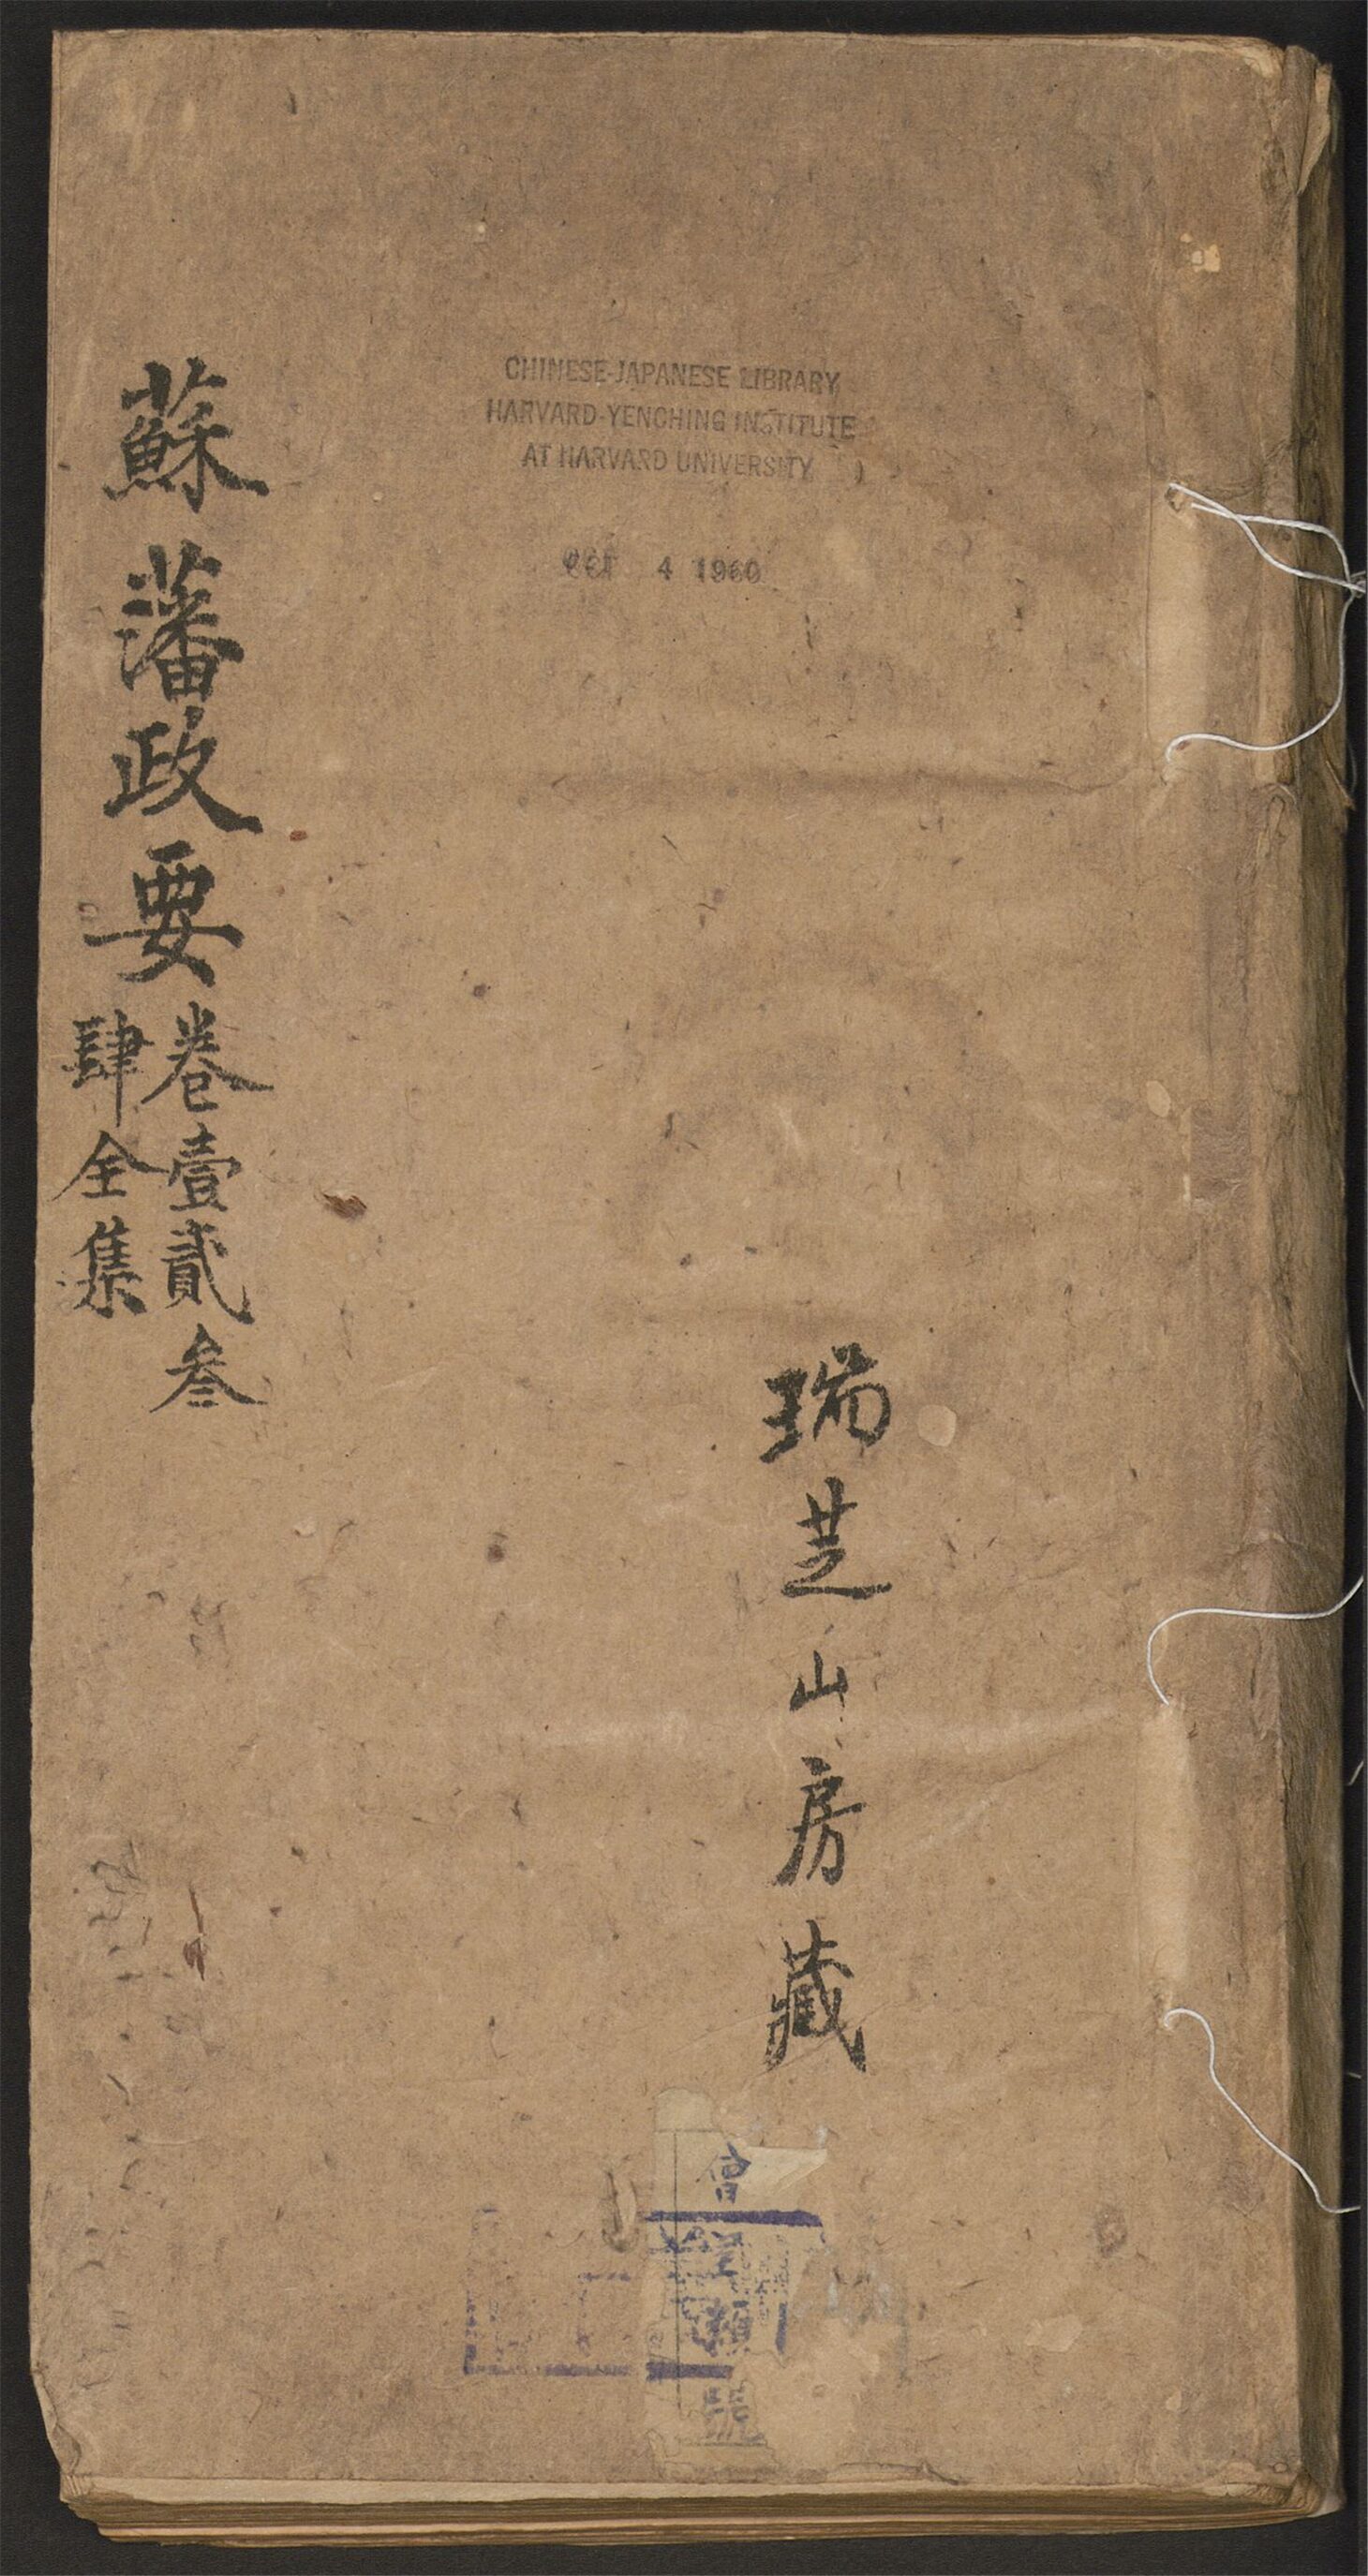 蘇藩政要
卷壹貳叁
肆全集
CHINESE-JAPANESE LIBRARY
HARVARD-YENCHING INSTITUTE
AT HARVARD UNIVERSITY
OCT 4 1960
瑞芝山房藏
會
類
號